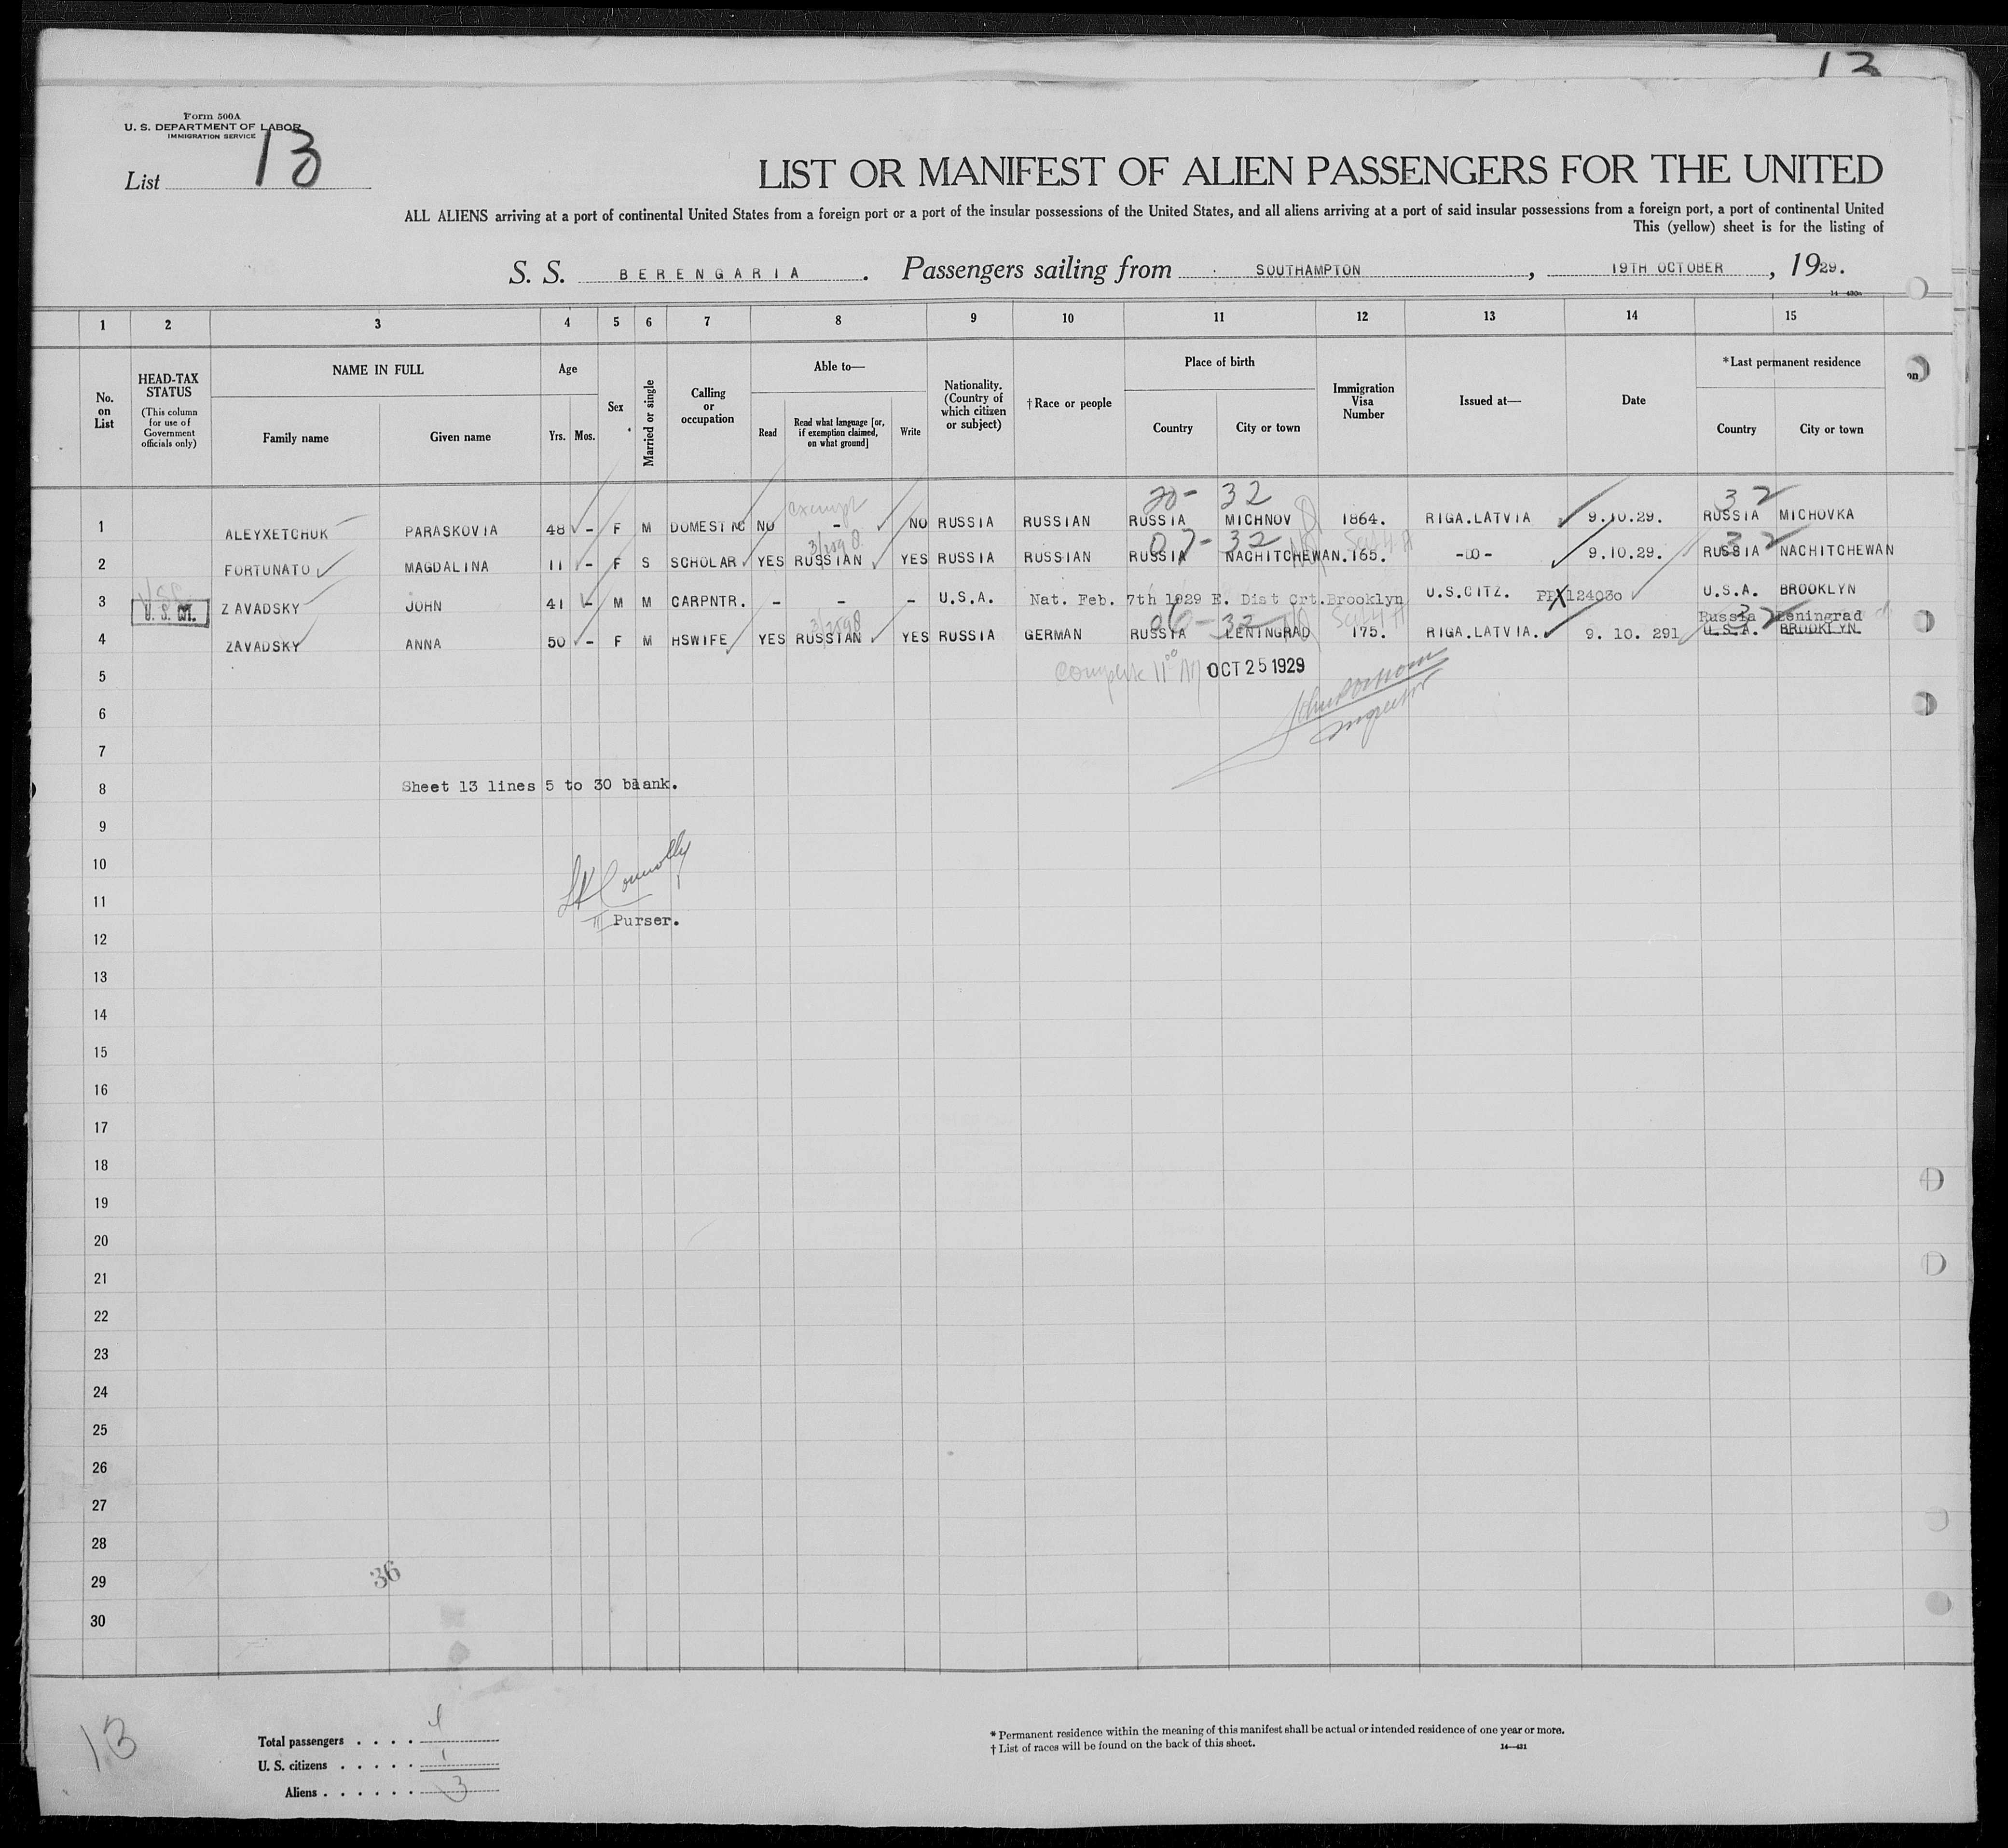 13
Form 500A
U. S. DEPARTMENT OF LABOR
IMMIGRATION SERVICE
List 13
LIST OR MANIFEST OF ALIEN PASSENGERS FOR THE UNITED
ALL ALIENS arriving at a port of continental United States from a foreign port or a port of the insular possessions of the United States, and all aliens arriving at a port of said insular possessions from a foreign port, a port of continental United
This (yellow) sheet is for the listing of
S. S. BERENGARIA. Passengers sailing from SOUTHAMPTON, 19TH OCTOBER, 1929.
1 2 3 4 5 6 7 8 9 10 11 12 13 14 15
No. on List
HEAD-TAX STATUS
(This column for use of Government officials only)
NAME IN FULL
Family name Given name
Age
Yrs. Mos.
Sex
Married or single
Calling or occupation
Able to—
Read
Read what language [or, if exemption claimed, on what ground]
Write
Nationality. (Country of which citizen or subject)
†Race or people
Place of birth
Country City or town
Immigration Visa Number
Issued at—
Date
*Last permanent residence
Country City or town
on
20- 32 32
exempt
1 ALEYXETCHUK PARASKOVIA 48 - F M DOMESTIC NO - NO RUSSIA RUSSIAN RUSSIA MICHNOV 1864. RIGA.LATVIA 9.10.29. RUSSIA MICHOVKA
07- 32 32
2 FORTUNATO MAGDALINA 11 - F S SCHOLAR YES RUSSIAN YES RUSSIA RUSSIAN RUSSIA NACHITCHEWAN. 165. -do- 9.10.29. RUSSIA NACHITCHEWAN
3 U. S. CIT. ZAVADSKY JOHN 41 - M M CARPNTR. - - - U.S.A. Nat. Feb. 7th 1929 E. Dist Crt. Brooklyn U.S.CITZ. PPX124030 U.S.A. BROOKLYN
06-32 32
Russia Leningrad
4 ZAVADSKY ANNA 50 - F M HSWIFE YES RUSSIAN YES RUSSIA GERMAN RUSSIA LENINGRAD 175. RIGA.LATVIA. 9. 10. 291 U.S.A. BROOKLYN.
5 OCT 25 1929
6
Inspector
7
8 Sheet 13 lines 5 to 30 blank.
9
10
11
Purser.
12
13
14
15
16
17
18
19
20
21
22
23
24
25
26
27
28
29 36
30
13
Total passengers . . . . 4
U. S. citizens . . . . . 1
Aliens . . . . . . 3
* Permanent residence within the meaning of this manifest shall be actual or intended residence of one year or more.
† List of races will be found on the back of this sheet.
14—421